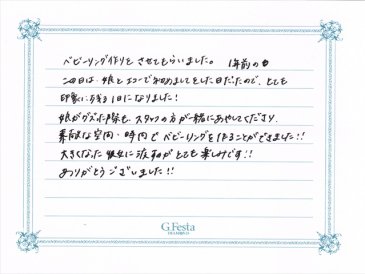 ベビーリング作りを させてもらいました。 1年前の
この日は、娘とエコーで初めましてをした日だったので、とても
印象に残る1日になりました!
娘がグズった際も、スタッフの方が一緒にあやしてくださり、
素敵な空間・時間で ベビーリングを作ることができました!!
大きくなった 彼女に渡すのが とても 楽しみです!!
ありがとう ございました!!
G.Festa